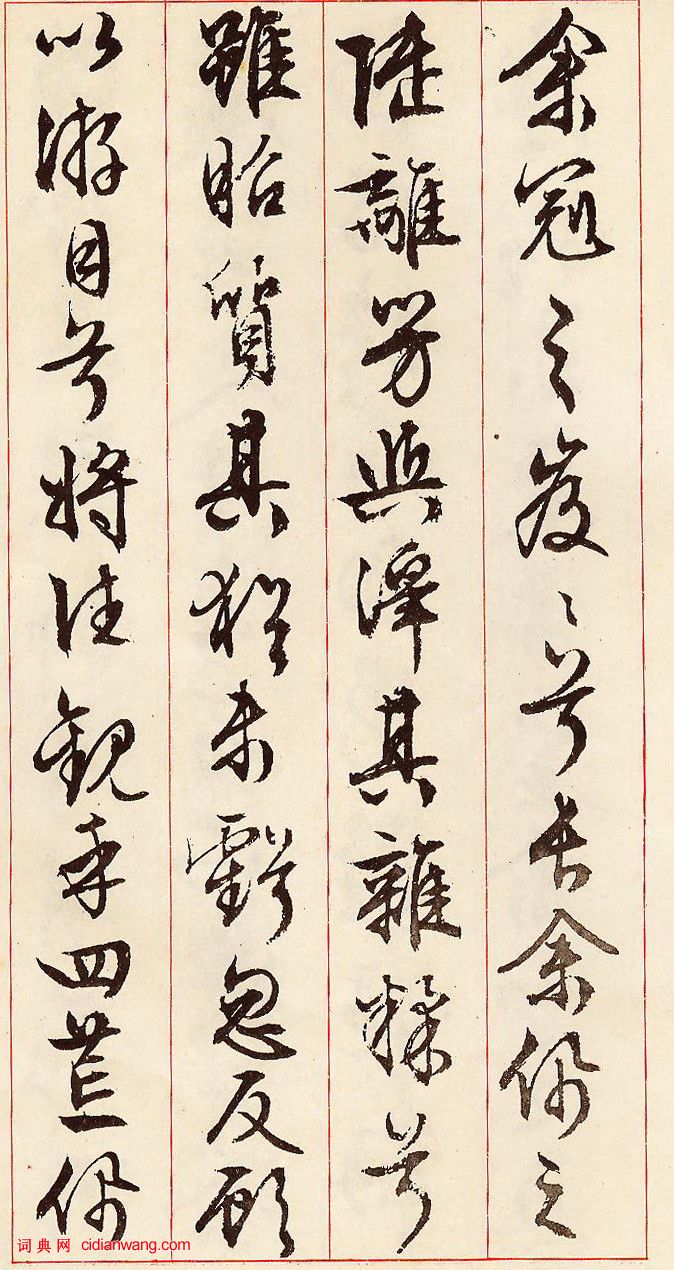 余冠之岌〻兮長余佩之
陸離芳與澤其雜糅兮
雖昭質其猶未虧忽反顧
以游目兮將往觀乎四荒佩
词典网 cidianwang.com